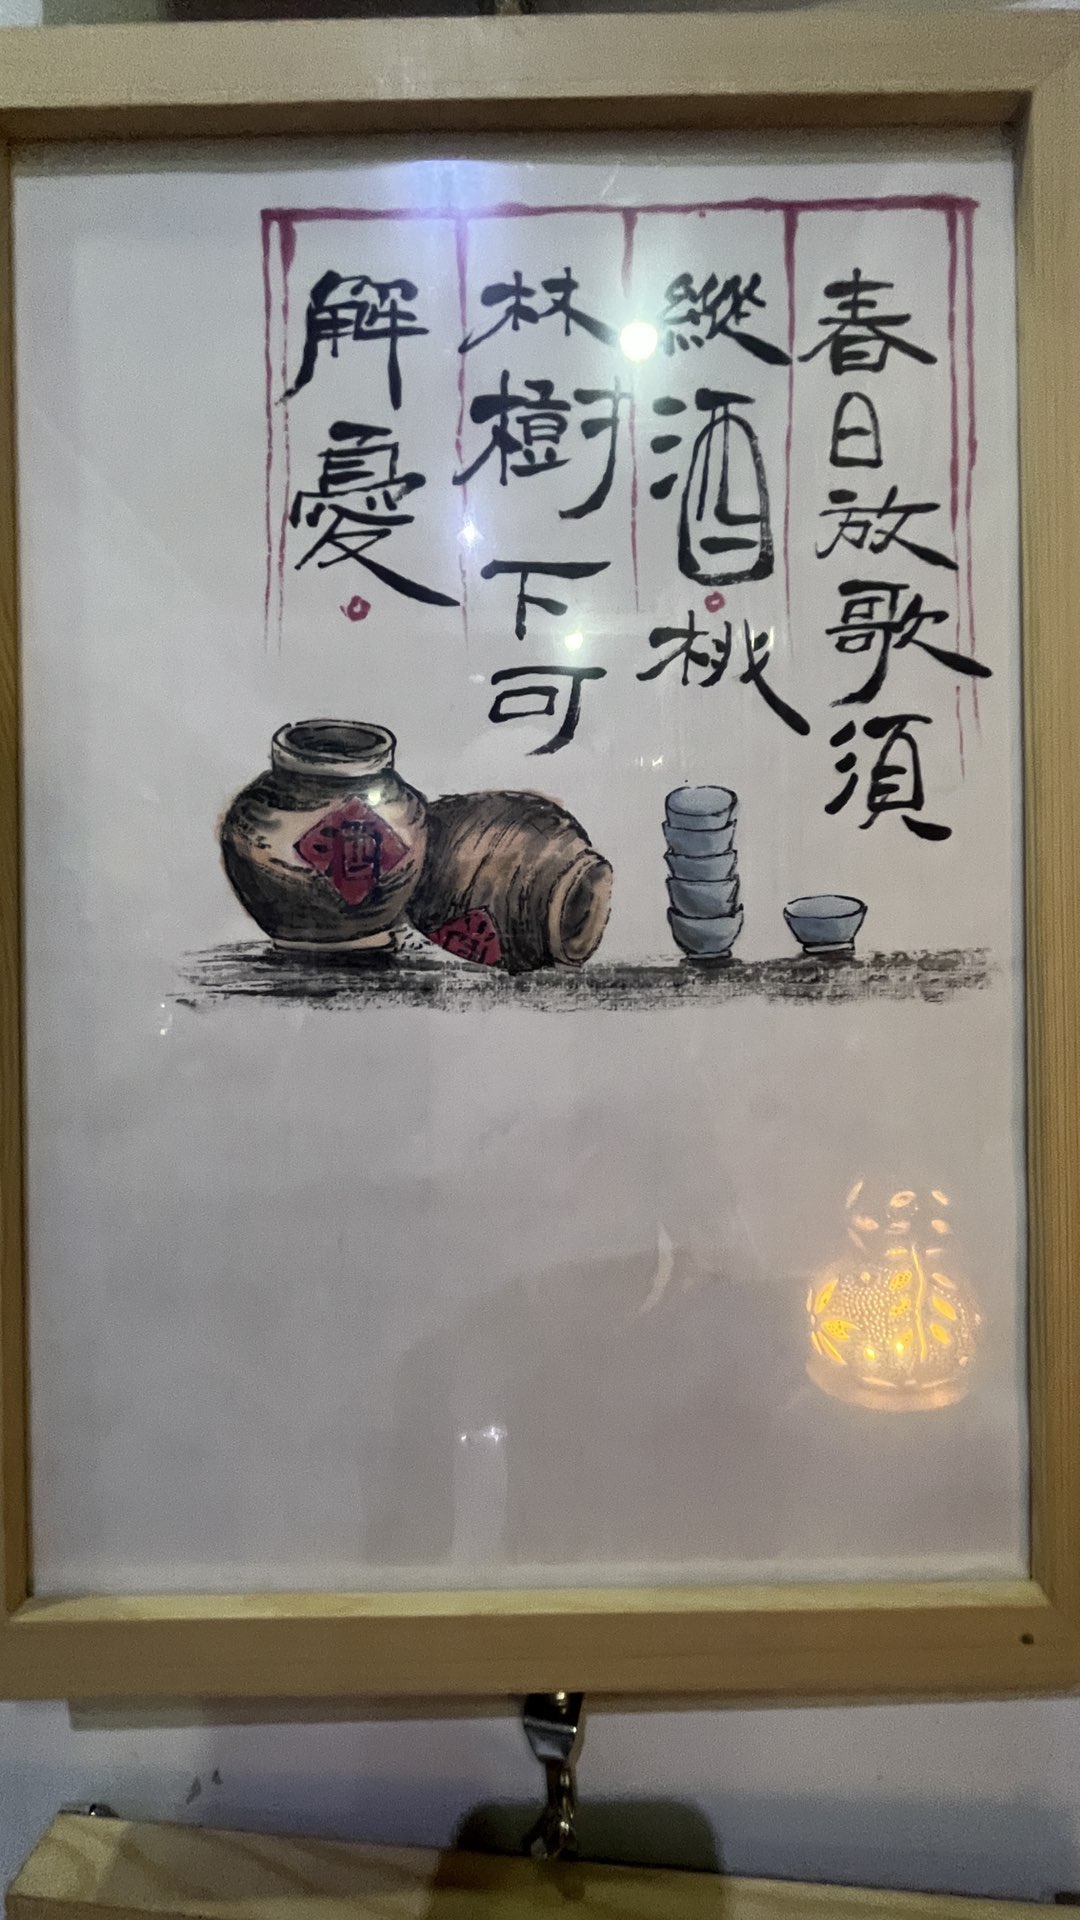 春日放歌須
縱酒。桃
林樹下可
解憂。
酒
酒